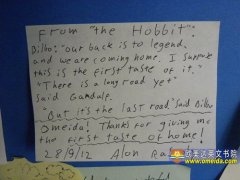 From "the Hobbit":
Bilbo: "our back is to legend,
and we are coming home. I suppose
this is the first taste of it."
"There is a long road yet"
said Gandalf.
"But it's the last road" said Bilbo
Omeida! Thanks for giving me
the first taste of home!
28/9/12 Alon
欧美达英文书院
www.omeida.com